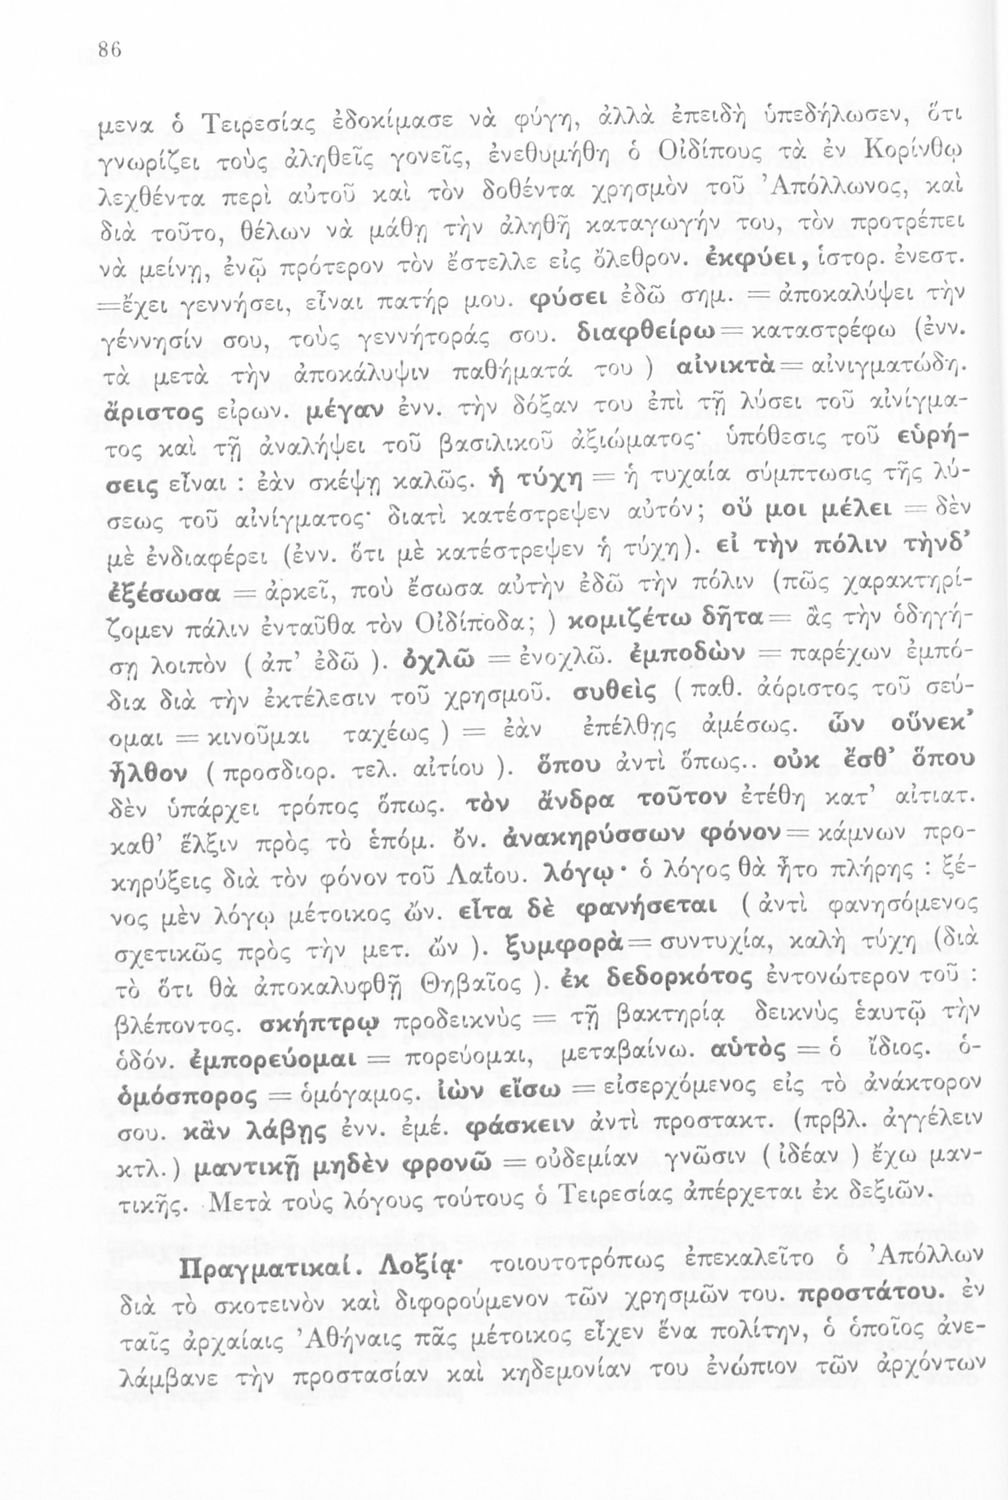 86
μενα ὁ Τειρεσίας ἐδοκίμασε νὰ φύγῃ, ἀλλὰ ἐπειδὴ ὑπεδήλωσεν, ὅτι
γνωρίζει τοὺς ἀληθεῖς γονεῖς, ἐνεθυμήθη ὁ Οἰδίπους τὰ ἐν Κορίνθῳ
λεχθέντα περὶ αὐτοῦ καὶ τὸν δοθέντα χρησμὸν τοῦ Ἀπόλλωνος, καὶ
διὰ τοῦτο, θέλων νὰ μάθῃ τὴν ἀληθῆ καταγωγήν του, τὸν προτρέπει
νὰ μείνῃ, ἐνῷ πρότερον τὸν ἔστελλε εἰς ὄλεθρον. ἐκφύει, ἱστορ. ἐνεστ.
=ἔχει γεννήσει, εἶναι πατήρ μου. φύσει ἐδῶ σημ. = ἀποκαλύψει τὴν
γέννησίν σου, τοὺς γεννήτοράς σου. διαφθείρω = καταστρέφω (ἐνν.
τὰ μετὰ τὴν ἀποκάλυψιν παθήματά του ) αἰνικτὰ = αἰνιγματώδη.
ἄριστος εἰρων. μέγαν ἐνν. τὴν δόξαν του ἐπὶ τῇ λύσει τοῦ αἰνίγμα-
τος καὶ τῇ ἀναλήψει τοῦ βασιλικοῦ ἀξιώματος· ὑπόθεσις τοῦ εὑρή-
σεις εἶναι : ἐὰν σκέψῃ καλῶς. ἡ τύχη = ἡ τυχαία σύμπτωσις τῆς λύ-
σεως τοῦ αἰνίγματος· διατὶ κατέστρεψεν αὐτόν; οὔ μοι μέλει = δὲν
μὲ ἐνδιαφέρει (ἐνν. ὅτι μὲ κατέστρεψεν ἡ τύχη). εἰ τὴν πόλιν τὴνδ’
ἐξέσωσα = ἀρκεῖ, ποὺ ἔσωσα αὐτὴν ἐδῶ τὴν πόλιν (πῶς χαρακτηρί-
ζομεν πάλιν ἐνταῦθα τὸν Οἰδίποδα; ) κομιζέτω δῆτα = ἂς τὴν ὁδηγή-
σῃ λοιπὸν ( ἀπ’ ἐδῶ ). ὀχλῶ = ἐνοχλῶ. ἐμποδὼν = παρέχων ἐμπό-
δια διὰ τὴν ἐκτέλεσιν τοῦ χρησμοῦ. συθεὶς ( παθ. ἀόριστος τοῦ σεύ-
ομαι = κινοῦμαι ταχέως ) = ἐὰν ἐπέλθῃς ἀμέσως. ὧν οὕνεκ’
ἦλθον ( προσδιορ. τελ. αἰτίου ). ὅπου ἀντὶ ὅπως.. οὐκ ἔσθ’ ὅπου
δὲν ὑπάρχει τρόπος ὅπως. τὸν ἄνδρα τοῦτον ἐτέθη κατ’ αἰτιατ.
καθ’ ἕλξιν πρὸς τὸ ἑπόμ. ὅν. ἀνακηρύσσων φόνον = κάμνων προ-
κηρύξεις διὰ τὸν φόνον τοῦ Λαΐου. λόγῳ · ὁ λόγος θὰ ἦτο πλήρης : ξέ-
νος μὲν λόγῳ μέτοικος ὤν. εἶτα δὲ φανήσεται ( ἀντὶ φανησόμενος
σχετικῶς πρὸς τὴν μετ. ὤν ). ξυμφορὰ = συντυχία, καλὴ τύχη (διὰ
τὸ ὅτι θὰ ἀποκαλυφθῇ Θηβαῖος ). ἐκ δεδορκότος ἐντονώτερον τοῦ :
βλέποντος. σκήπτρῳ προδεικνὺς = τῇ βακτηρίᾳ δεικνὺς ἑαυτῷ τὴν
ὁδόν. ἐμπορεύομαι = πορεύομαι, μεταβαίνω. αὑτὸς = ὁ ἴδιος. ὁ-
ὁμόσπορος = ὁμόγαμος. ἰὼν εἴσω = εἰσερχόμενος εἰς τὸ ἀνάκτορον
σου. κἂν λάβῃς ἐνν. ἐμέ. φάσκειν ἀντὶ προστακτ. (πρβλ. ἀγγέλειν
κτλ. ) μαντικῇ μηδὲν φρονῶ = οὐδεμίαν γνῶσιν ( ἰδέαν ) ἔχω μαν-
τικῆς. Μετὰ τοὺς λόγους τούτους ὁ Τειρεσίας ἀπέρχεται ἐκ δεξιῶν.
Πραγματικαί. Λοξίᾳ· τοιουτοτρόπως ἐπεκαλεῖτο ὁ Ἀπόλλων
διὰ τὸ σκοτεινὸν καὶ διφορούμενον τῶν χρησμῶν του. προστάτου. ἐν
ταῖς ἀρχαίαις Ἀθήναις πᾶς μέτοικος εἶχεν ἕνα πολίτην, ὁ ὁποῖος ἀνε-
λάμβανε τὴν προστασίαν καὶ κηδεμονίαν του ἐνώπιον τῶν ἀρχόντων